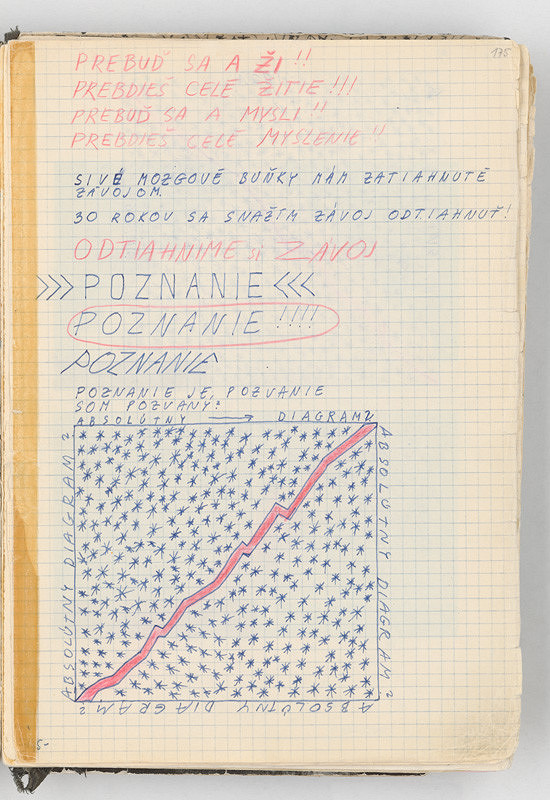 175
PREBUĎ SA A ŽI!!
PREBDIEŠ CELÉ ŽITIE!!!
PREBUĎ SA A MYSLI!!
PREBDIEŠ CELÉ MYSLENIE!!
SIVÉ MOZGOVÉ BUŇKY MÁM ZATIAHNUTÉ
ZÁVOJOM.
30 ROKOV SA SNAŽÍM ZÁVOJ ODTIAHNUŤ!
ODTIAHNIME SI ZÁVOJ
>>> POZNANIE <<<
POZNANIE!!!!
POZNANIE
POZNANIE JE, POZVANIE
SOM POZVANÝ?
ABSOLÚTNY → DIAGRAM 2
ABSOLÚTNY DIAGRAM 2
ABSOLÚTNY DIAGRAM 2
ABSOLÚTNY DIAGRAM 2